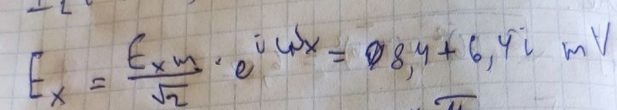 E_x = E_xm/√2 · e^iψx = 8,4 + 6,4i mV